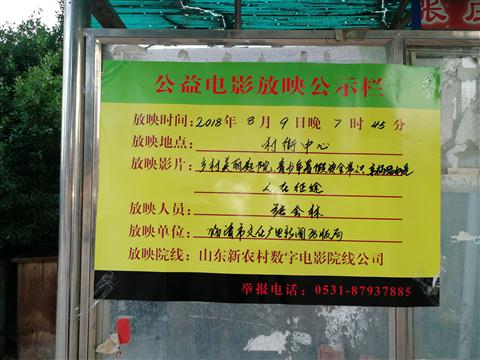 公益电影放映公示栏
放映时间：2018年 8 月 9 日晚 7 时 45 分
放映地点：村街中心
放映影片：乡村美丽庭院，青少年暑假安全常识
人在征途
放映人员：张会林
放映单位：临清市文化广电新闻出版局
放映院线：山东新农村数字电影院线公司
举报电话：0531-87937885